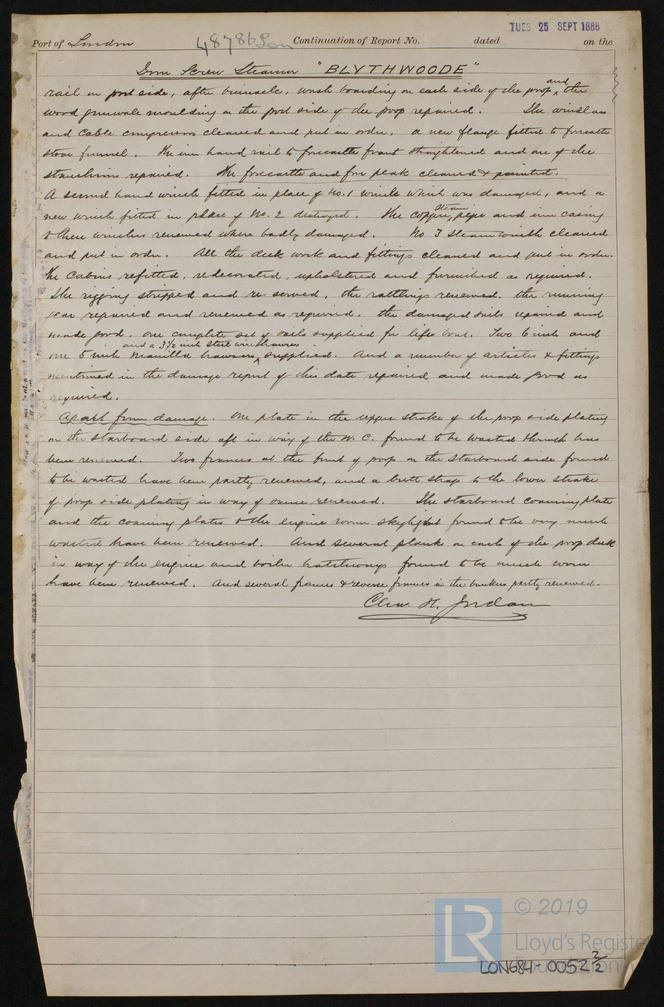 TUES 25 SEPT 1888
Port of London 48786 Lon Continuation of Report No. dated on the
Iron Screw Steamer "BLYTHWOODE"
rail on port side, after binnacle, wash boarding on each side of the poop, and the
wood gunwale moulding on the port side of the poop repaired. The windlass
and cable compressors cleaned and put in order. a new flange fitted to forecastle
stove funnel. The iron hand rail to forecastle front straightened and one of the
stanchions repaired. The forecastle and fore peak cleaned & painted.
A second hand winch fitted in place of No. 1 winch which was damaged, and a
new winch fitted in place of No. 2 destroyed. The copper steam pipes and iron casing
to these winches renewed where badly damaged. No 3 Steam winch cleaned
and put in order. All the deck work and fittings cleaned and put in order.
The Cabins refitted, redecorated, upholstered and furnished as required.
The rigging stripped and re-served, the rattlings renewed, the running
gear repaired and renewed as required. the damaged sails repaired and
made good. one complete set of sails supplied for life boat. Two 6 inch and
one 5 inch manilla hawsers and a 3½ inch steel wire hawser supplied. And a number of articles & fittings
mentioned in the damage report of this date repaired and made good as
required.
Apart from damage. One plate in the upper strake of the poop side plating
on the starboard side aft in way of the W.C. found to be wasted through has
been renewed. Two frames at the front of poop on the starboard side found
to be wasted have been partly renewed, and a butt strap to the lower strake
of poop side plating in way of same renewed. The starboard coaming plate
and the coaming plates to the engine room skylight found to be very much
wasted have been renewed. And several planks on each of the poop deck
in way of the engine and boiler hatchways found to be much worn
have been renewed. And several frames & reverse frames in the bunkers partly renewed.
Chas. H. Jordan
© 2019
LR Lloyd's Register
LON684-0052 2/2